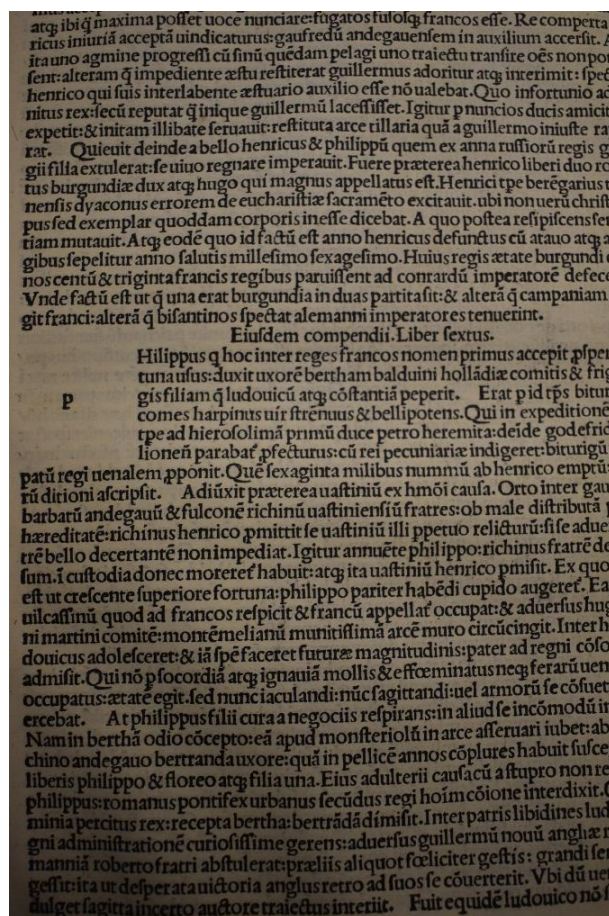 atq̧ ibi q̄ maxima posset uoce nunciare: fugatos fusosq̧ francos esse. Re comperta
ricus iniuriā acceptā uindicaturus: gaufredū andegauensem in auxilium accersit. A
ita uno agmine progressi cū sinū quēdam pelagi uno traiectu transire oēs non pot
sent: alteram q̄ impediente æstu restiterat guillermus adoritur atq̧ interimit: spec
henrico qui suis interlabente æstuario auxilio esse nō ualebat. Quo infortunio ad
nitus rex: secū reputat q̄ inique guillermū lacessisset. Igitur p nuncios ducis amicit
expetit: & initam illibate seruauit: restituta arce tillaria quā a guillermo iniuste ra
rat. Quieuit deinde a bello henricus & philippū quem ex anna russiorū regis g
gii filia extulerat: se uiuo regnare imperauit. Fuere præterea henrico liberi duo ro
tus burgundiæ dux atq̧ hugo qui magnus appellatus est. Henrici tpe berēgarius t
nensis dyaconus errorem de eucharistiæ sacramēto excitauit. ubi non uerū christ
pus sed exemplar quoddam corporis inesse dicebat. A quo postea resipiscens sen
tiam mutauit. Atq̧ eodē quo id factū est anno henricus defunctus cū atauo atq̧ a
gibus sepelitur anno salutis millesimo sexagesimo. Huius regis ætate burgundi c
nos centū & triginta francis regibus paruissent ad conrardū imperatorē defece
Vnde factū est ut q̄ una erat burgundia in duas partita sit: & alterā q̄ campaniam
git franci: alterā q̄ bisantinos spectat alemanni imperatores tenuerint.
Eiusdem compendii. Liber sextus.
Hilippus q hoc inter reges francos nomen primus accepit ꝓspe
tuna usus: duxit uxorē bertham balduini hollādiæ comitis & frig
p gis filiam q̄ ludouicū atq̧ cōstantiā peperit. Erat p id tp̄s bitur
comes harpinus uir strēnuus & bellipotens. Qui in expeditionē
tpe ad hierosolimā primū duce petro heremita: deīde godefrid
lionen̄ parabat ꝓfecturus: cū rei pecuniariæ indigeret: biturigū
patū regi uenalem ꝓponit. Quē sexaginta milibus nummū ab henrico emptū:
rū ditioni ascripsit. Adiūxit præterea uastiniū ex hmōi causa. Orto inter gau
barbatū andegauū & fulconē richinū uastiniensiū fratres: ob male distributā p
hæreditatē: richinus henrico ꝓmittit se uastiniū illi ppetuo relicturū: si se adue
trē bello decertantē non impediat. Igitur annuēte philippo: richinus fratrē de
sum. ī custodia donec moreret̄ habuit: atq̧ ita uastiniū henrico pmisit. Ex quo
est ut crescente superiore fortuna: philippo pariter habēdi cupido augeret̄. Ea
uilcassinū quod ad francos respicit & francū appellat̄ occupat: & aduersus hug
ni martini comitē: montēmelianū munitissimā arcē muro circūcingit. Inter h
douicus adolesceret: & iā spē faceret futuræ magnitudinis: pater ad regni cōso
admisit. Qui nō p socordiā atq̧ ignauiā mollis & effœminatus neq̧ ferarū uen
occupatus: ætatē egit. sed nunc iaculandi: nūc sagittandi: uel armorū se cōsuet
ercebat. At philippus filii cura a negociis respirans: in aliud se incōmodū in
Nam in berthā odio cōcepto: eā apud monsteriolū in arce asseruari iubet: ab
chino andegauo bertranda uxore: quā in pellicē annos cōplures habuit susce
liberis philippo & floreo atq̧ filia una. Eius adulterii causa cū a stupro non re
philippus: romanus pontifex urbanus secūdus regi hoīm cōione interdixit. Q
minia percitus rex: recepta bertha: bertrādā dimisit. Inter patris libidines lud
gni administrationē curiosissime gerens: aduersus guillermū nouū angliæ r
manniā roberto fratri abstulerat: præliis aliquot fœliciter gestis: grandi fer
gessit: ita ut desperata uictoria anglus retro ad suos se cōuerterit. Vbi dū uen
dulget sagitta incerto auctore traiectus interiit. Fuit equidē ludouico nō